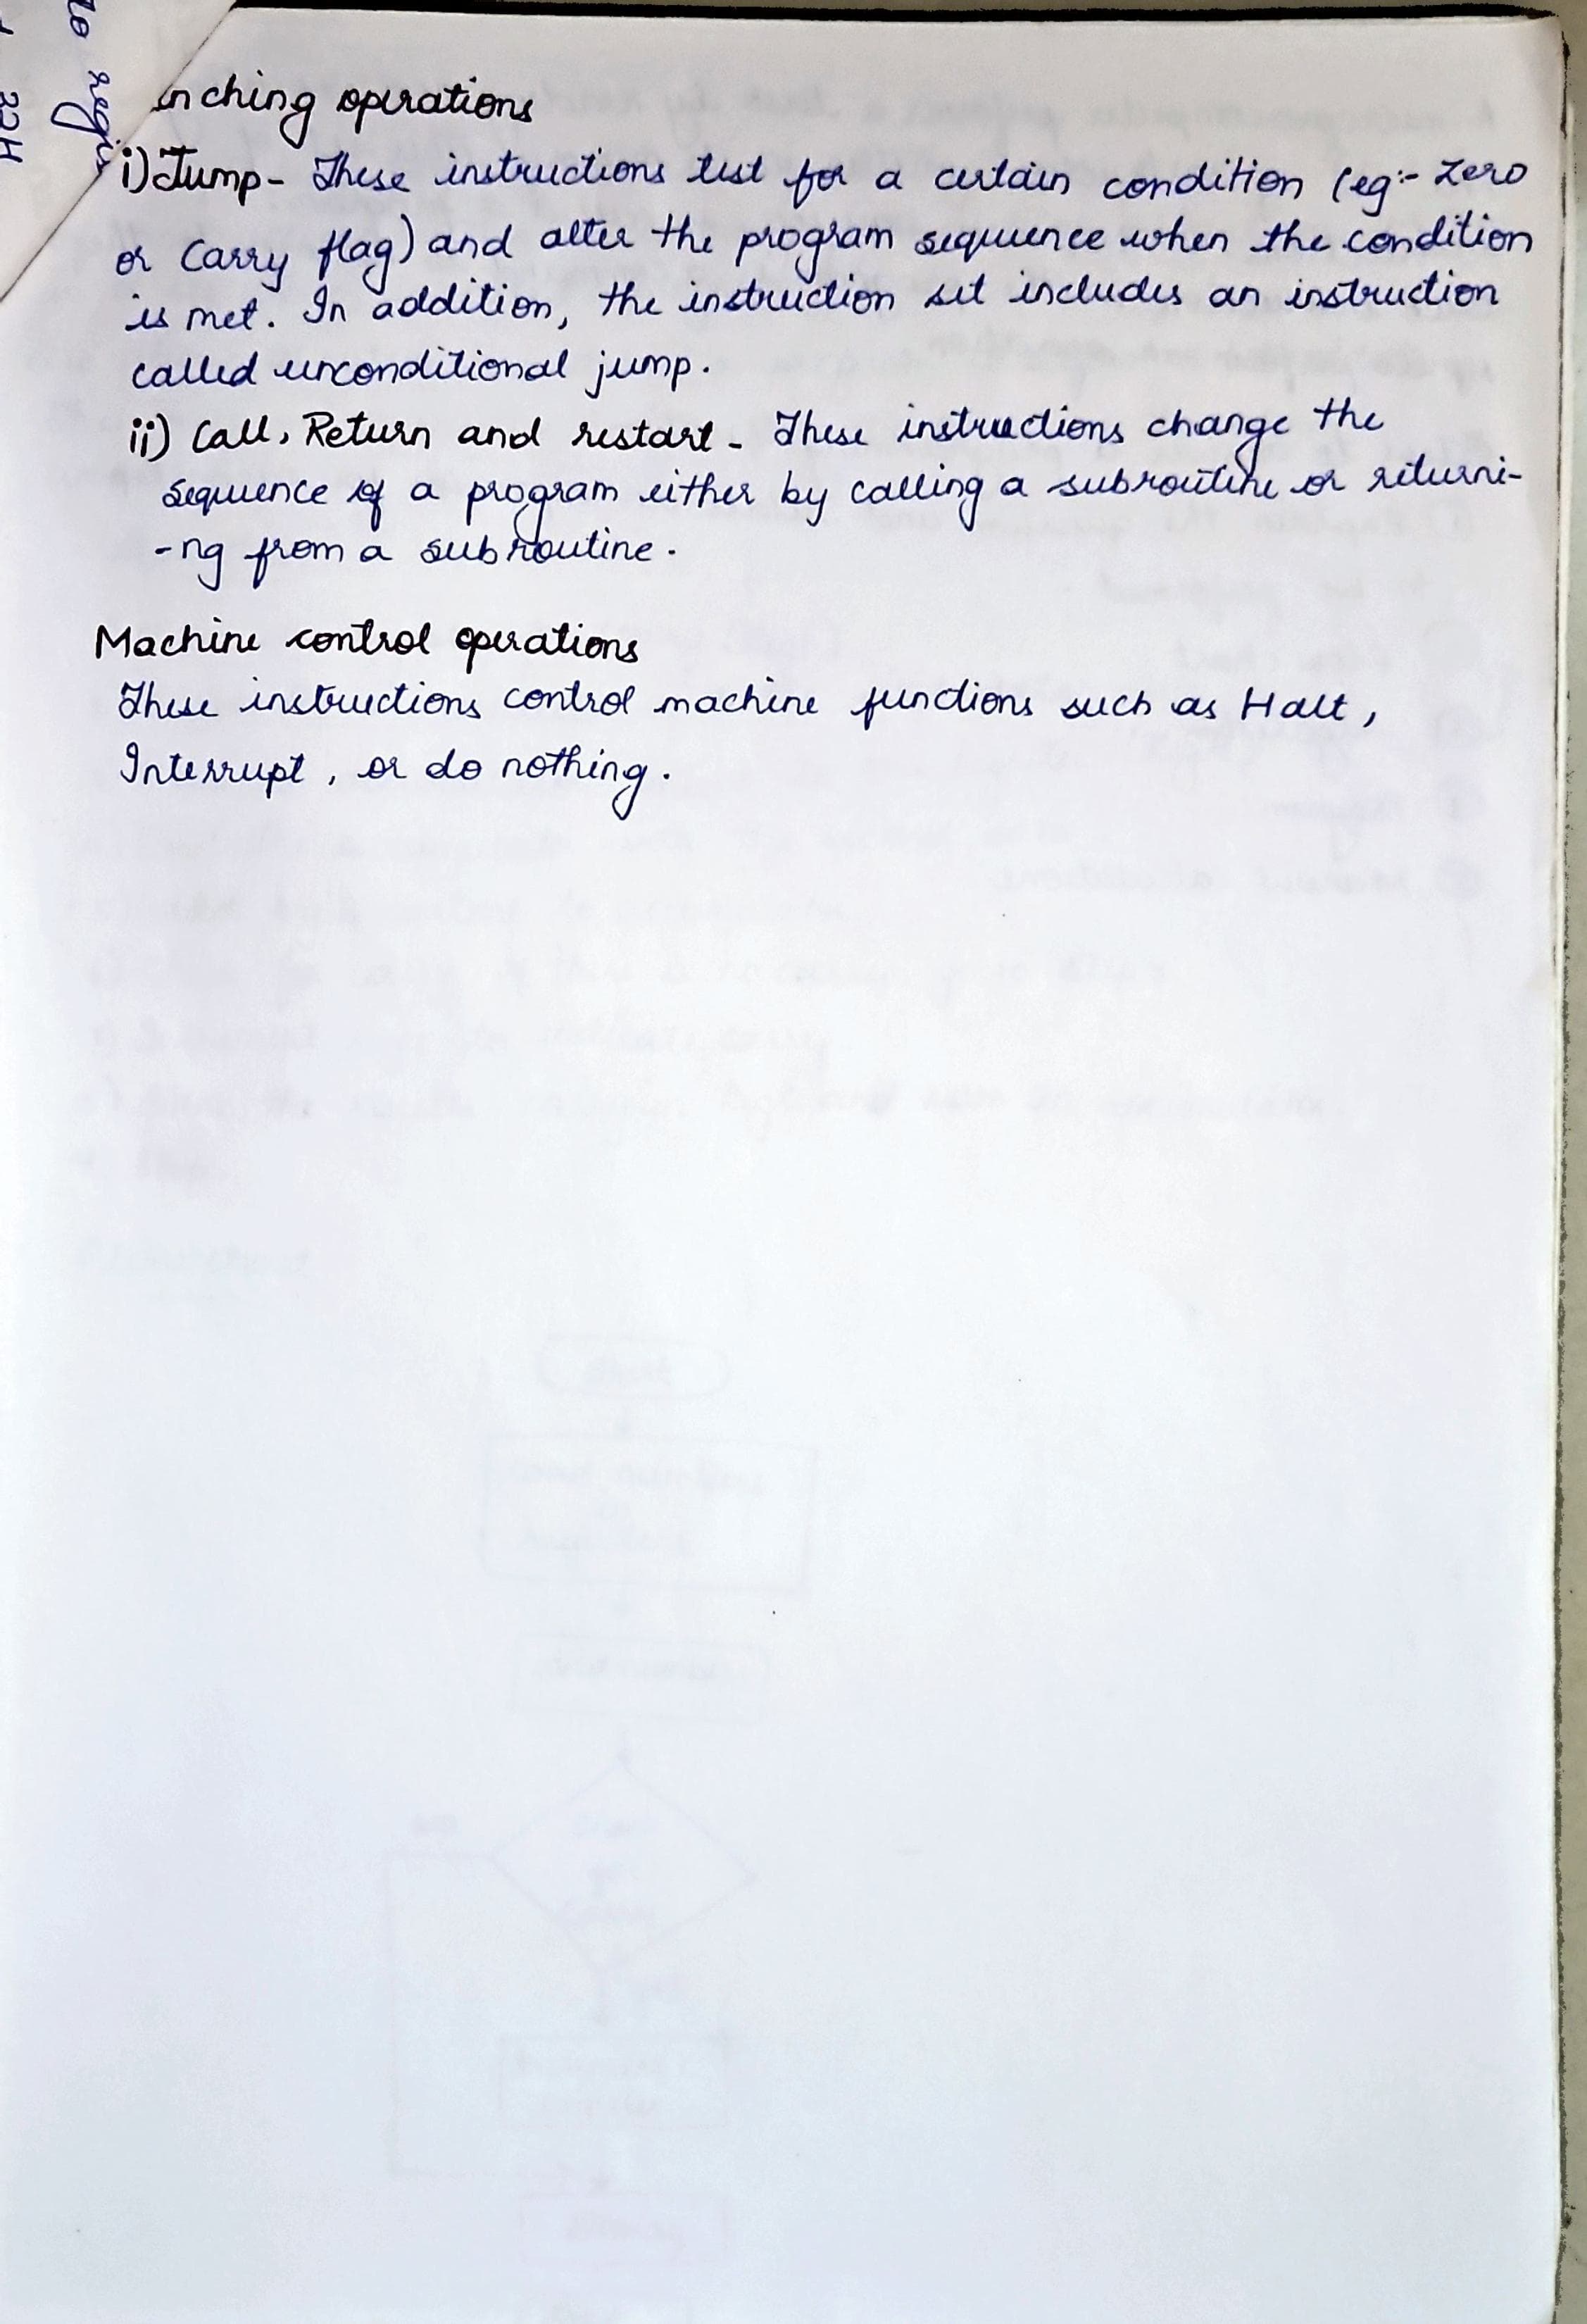 nching operations
i) Jump- These instructions test for a certain condition (eg:- Zero
or Carry flag) and alter the program sequence when the condition
is met. In addition, the instruction set includes an instruction
called unconditional jump.
ii) Call, Return and restart - These instructions change the
sequence of a program either by calling a subroutine or returni-
-ng from a subroutine.
Machine control operations
These instructions control machine functions such as Halt,
Interrupt, or do nothing.